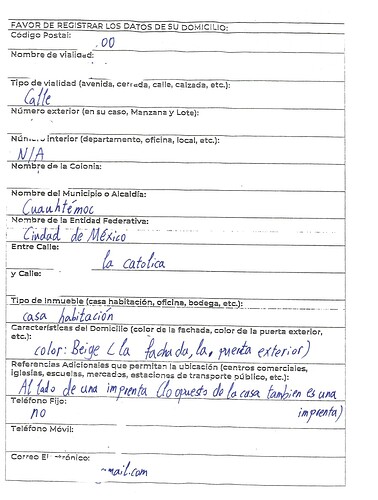 FAVOR DE REGISTRAR LOS DATOS DE SU DOMICILIO:
Código Postal:
.00
Nombre de vialidad:
Tipo de vialidad (avenida, cerrada, calle, calzada, etc.):
Calle
Número exterior (en su caso, Manzana y Lote):
Número interior (departamento, oficina, local, etc.):
N/A
Nombre de la Colonia:
Nombre del Municipio o Alcaldía:
Cuauhtémoc
Nombre de la Entidad Federativa:
Ciudad de México
Entre Calle:
la catolica
y Calle:
Tipo de Inmueble (casa habitación, oficina, bodega, etc.):
casa habitación
Características del Domicilio (color de la fachada, color de la puerta exterior,
etc.):
color: Beige (la fachada, la, puerta exterior)
Referencias Adicionales que permitan la ubicación (centros comerciales,
iglesias, escuelas, mercados, estaciones de transporte público, etc.):
Al lado de una imprenta (lo opuesto de la casa tambien es una
imprenta)
Teléfono Fijo:
no
Teléfono Móvil:
Correo El rónico:
mail.com